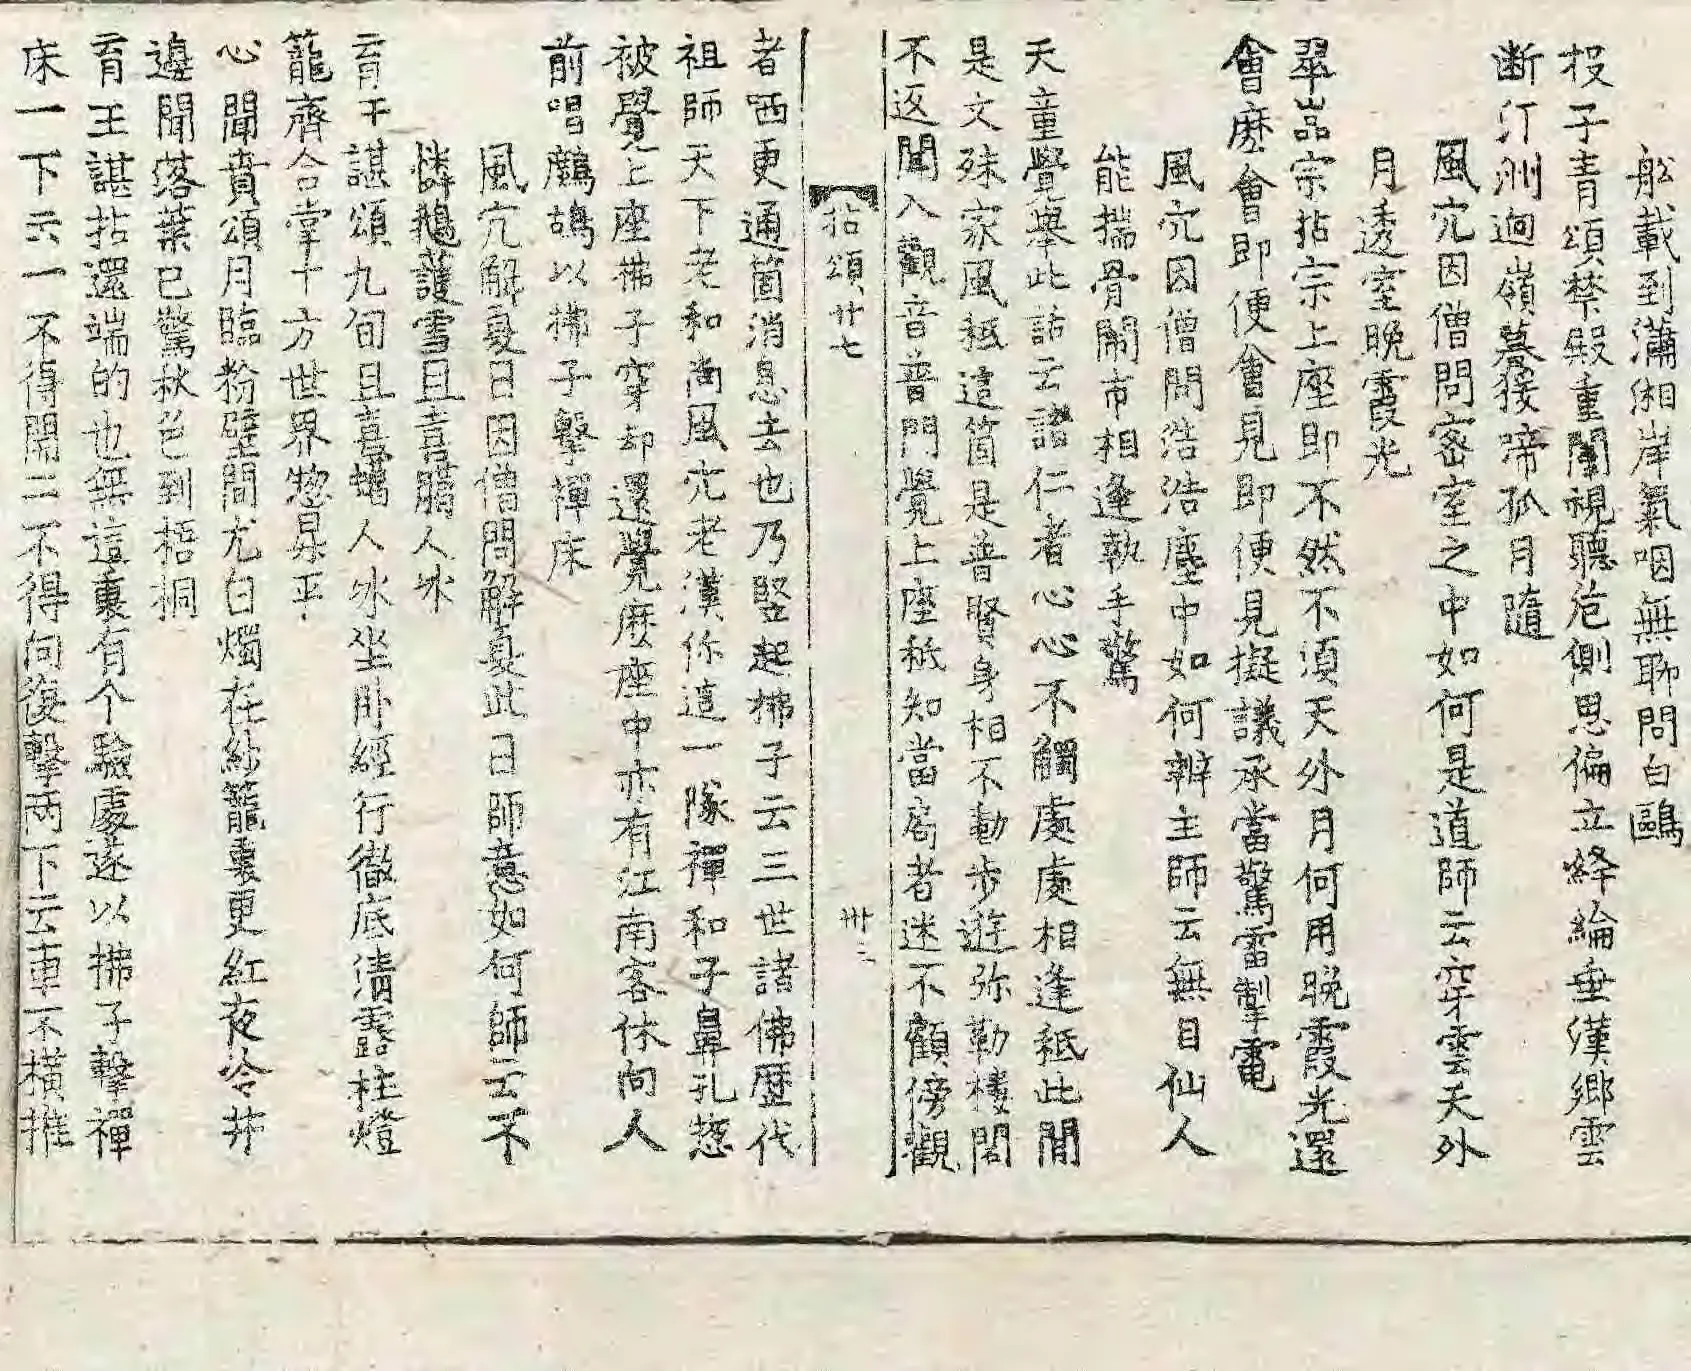 舩載到瀟湘岸氣咽無聊問白鷗
投子青頌禁殿重闈視聽危側思偏立絳綸垂漢鄉雲
断汀洲迥嶺暮猨啼孤月隨
風宂因僧問密室之中如何是道師云穿雲天外
月透室晩霞光
翠嵓宗拈宗上座即不然不湏天外月何用晩霞光還
會麽會即便會見即便見擬議承當驚雷掣電
風宂因僧問浩浩塵中如何辨主師云無目仙人
能揣骨鬧市相逢執手驚
天童覺舉此話云諸仁者心心不觸處處相逢秪此閒
是文殊家風秪這箇是普賢身相不動步遊弥勒樓閣
不返聞入觀音普門覺上座秪知當局者迷不顧傍觀
拈頌廿七
卅二
者哂更通箇消息去也乃竪起拂子云三世諸佛歷代
祖師天下老和尚風宂老漢你這一隊禪和子鼻孔揔
被覺上座拂子穿却還覺麽座中亦有江南客休向人
前唱鷓鴣以拂子擊禪床
風宂解夏日因僧問解夏此日師意如何師云不
憐鵝護雪且喜臘人冰
育王諶頌九旬且喜蠟人冰坐卧經行徹底清露柱燈
籠齊合掌十方世界揔昇平
心聞賁頌月臨粉壁間尤白燭在紗籠裏更紅夜冷井
邊聞落葉已驚秋色到梧桐
育王諶拈還端的也無這裏有个驗處遂以拂子擊禪
床一下云一不得開二不得向復擊兩下云車不橫推